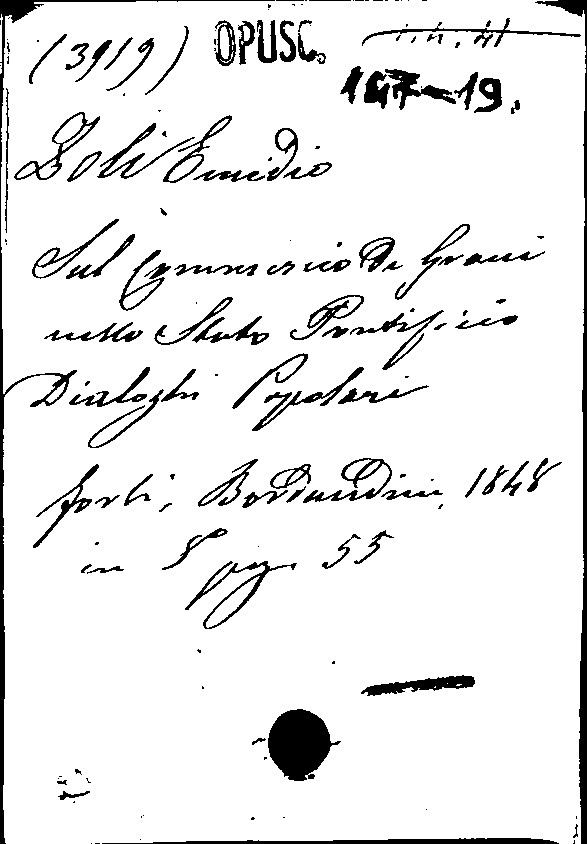 (3919) OPUSC.
167-19.
Zoli Emidio
Sul Commercio de Grani
nello Stato Pontificio
Dialoghi Popolari
Forlì, Bordandini, 1848
in 8° pag. 55